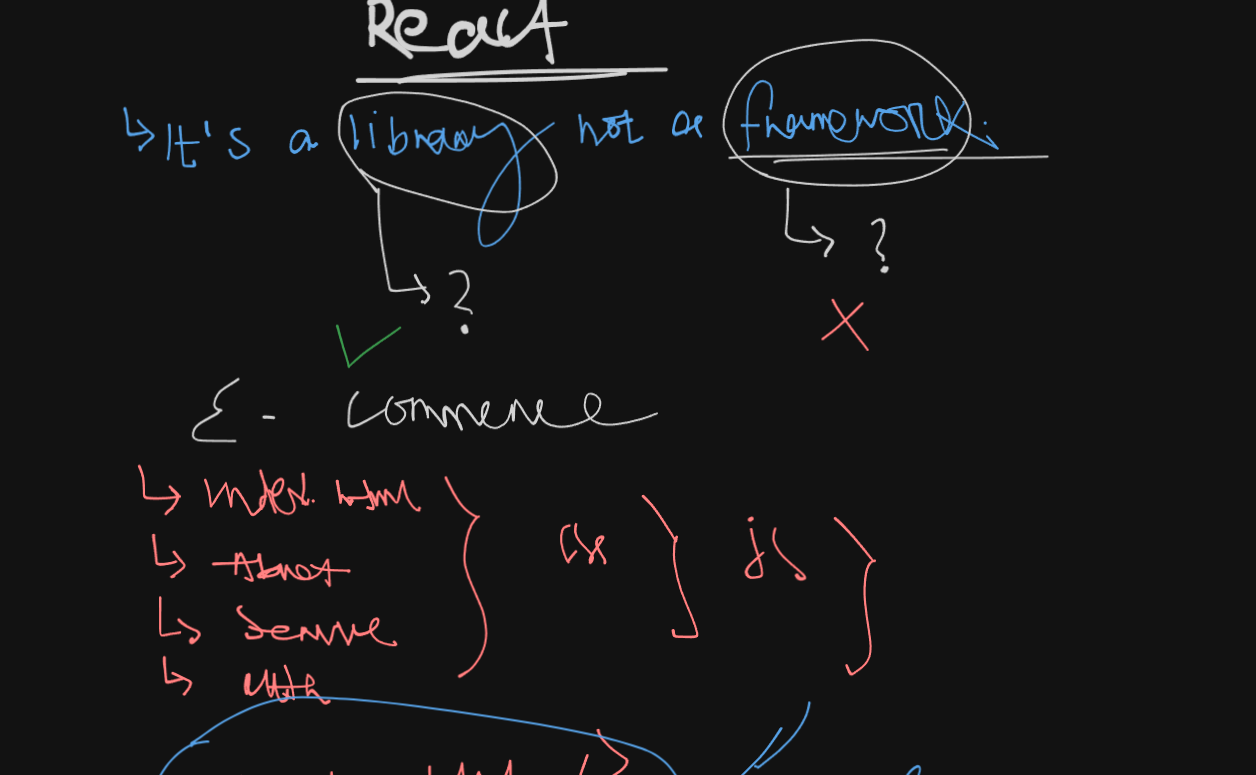 React
↳ It's a library not a framework.
↳ ? ↳ ?
E - commerce
↳ index.html } css ] js }
↳ About
↳ Service
↳ Auth